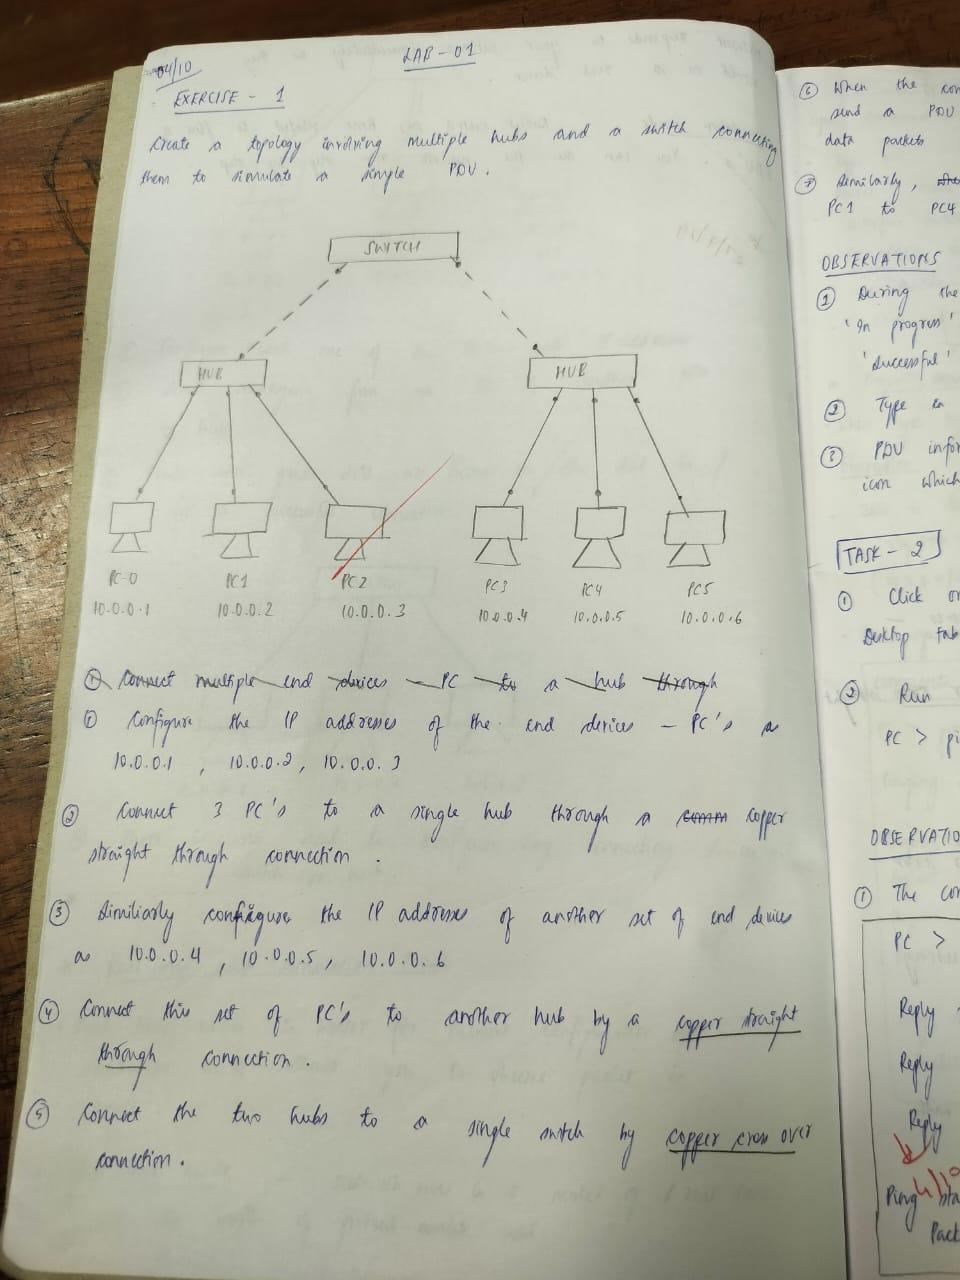 04/10
LAB - 01
EXERCISE - 1
Create a topology involving multiple hubs and a switch connecting
them to simulate a simple PDU.
SWITCH
HUB
HUB
PC-0
PC1
PC2
PC3
PC4
PC5
10.0.0.1
10.0.0.2
10.0.0.3
10.0.0.4
10.0.0.5
10.0.0.6
① Connect multiple end devices - PC to a hub through
① Configure the IP addresses of the end devices - PC's as
10.0.0.1 , 10.0.0.2, 10.0.0.3
② Connect 3 PC's to a single hub through a comm copper
straight through connection .
③ Similiarly configure the IP addresses of another set of end devices
as 10.0.0.4 , 10.0.0.5, 10.0.0.6
④ Connect this set of PC's to another hub by a copper straight
through connection .
⑤ Connect the two hubs to a single switch by copper cross over
connection .
⑥ When the
send a PDU
data packets
⑦ Similarly,
PC1 to PC4
OBSERVATIONS
① During the
'In progress'
'Successful'
② Type
③ PDU
icon which
TASK - 2
① Click
Desktop
② Run
PC >
① The
PC >
Reply
Reply
Reply
Ping